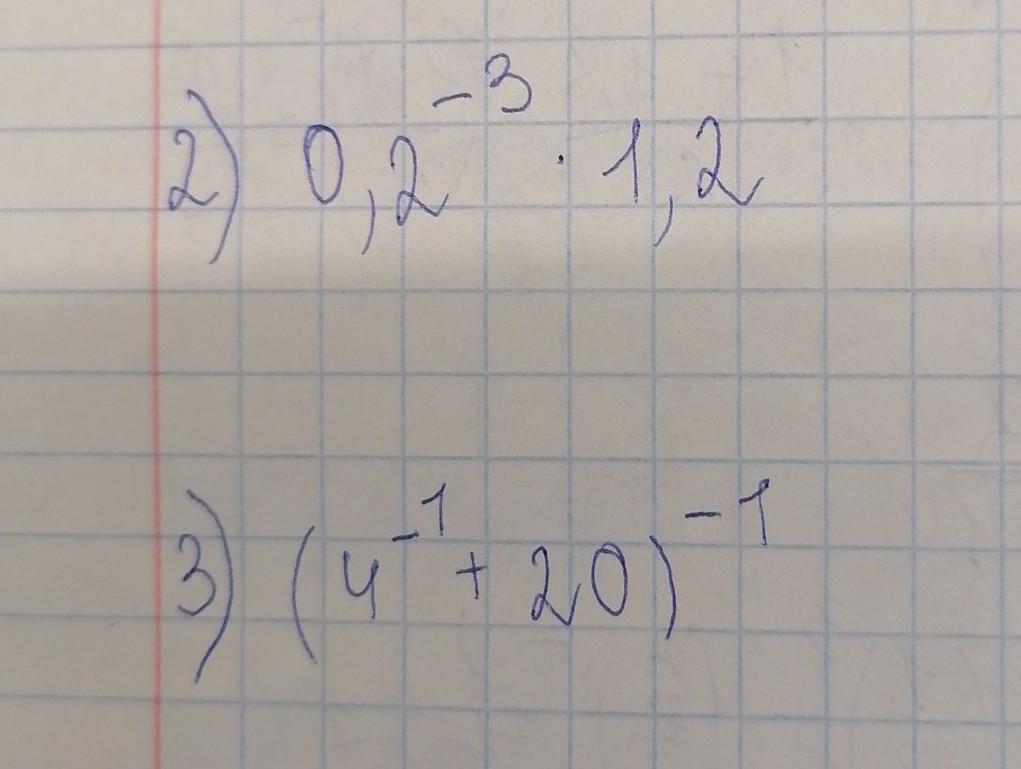 2) 0,2⁻³ · 1,2
3) (4⁻¹ + 20)⁻¹